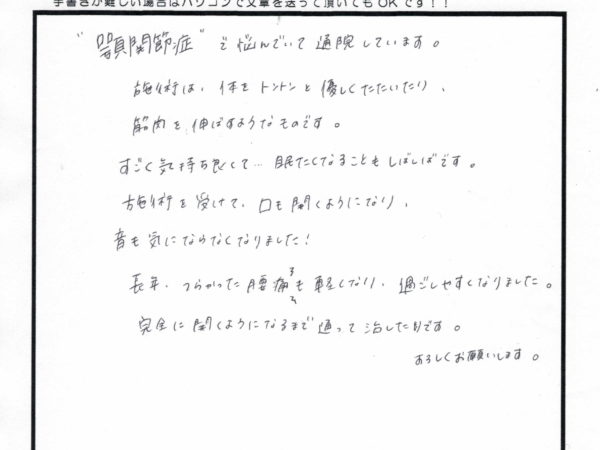 手書きが難しい場合はパソコンで文章を送って頂いてもOKです！！
"顎関節症"で悩んでいて通院しています。
施術は、体をトントンと優しくたたいたり、
筋肉を伸ばすようなものです。
すごく気持ち良くて…眠たくなることもしばしばです。
施術を受けて、口も開くようになり、
音も気にならなくなりました！
長年、つらかった腰痛も軽くなり、過ごしやすくなりました。
完全に開くようになるまで通って治したいです。
よろしくお願いします。